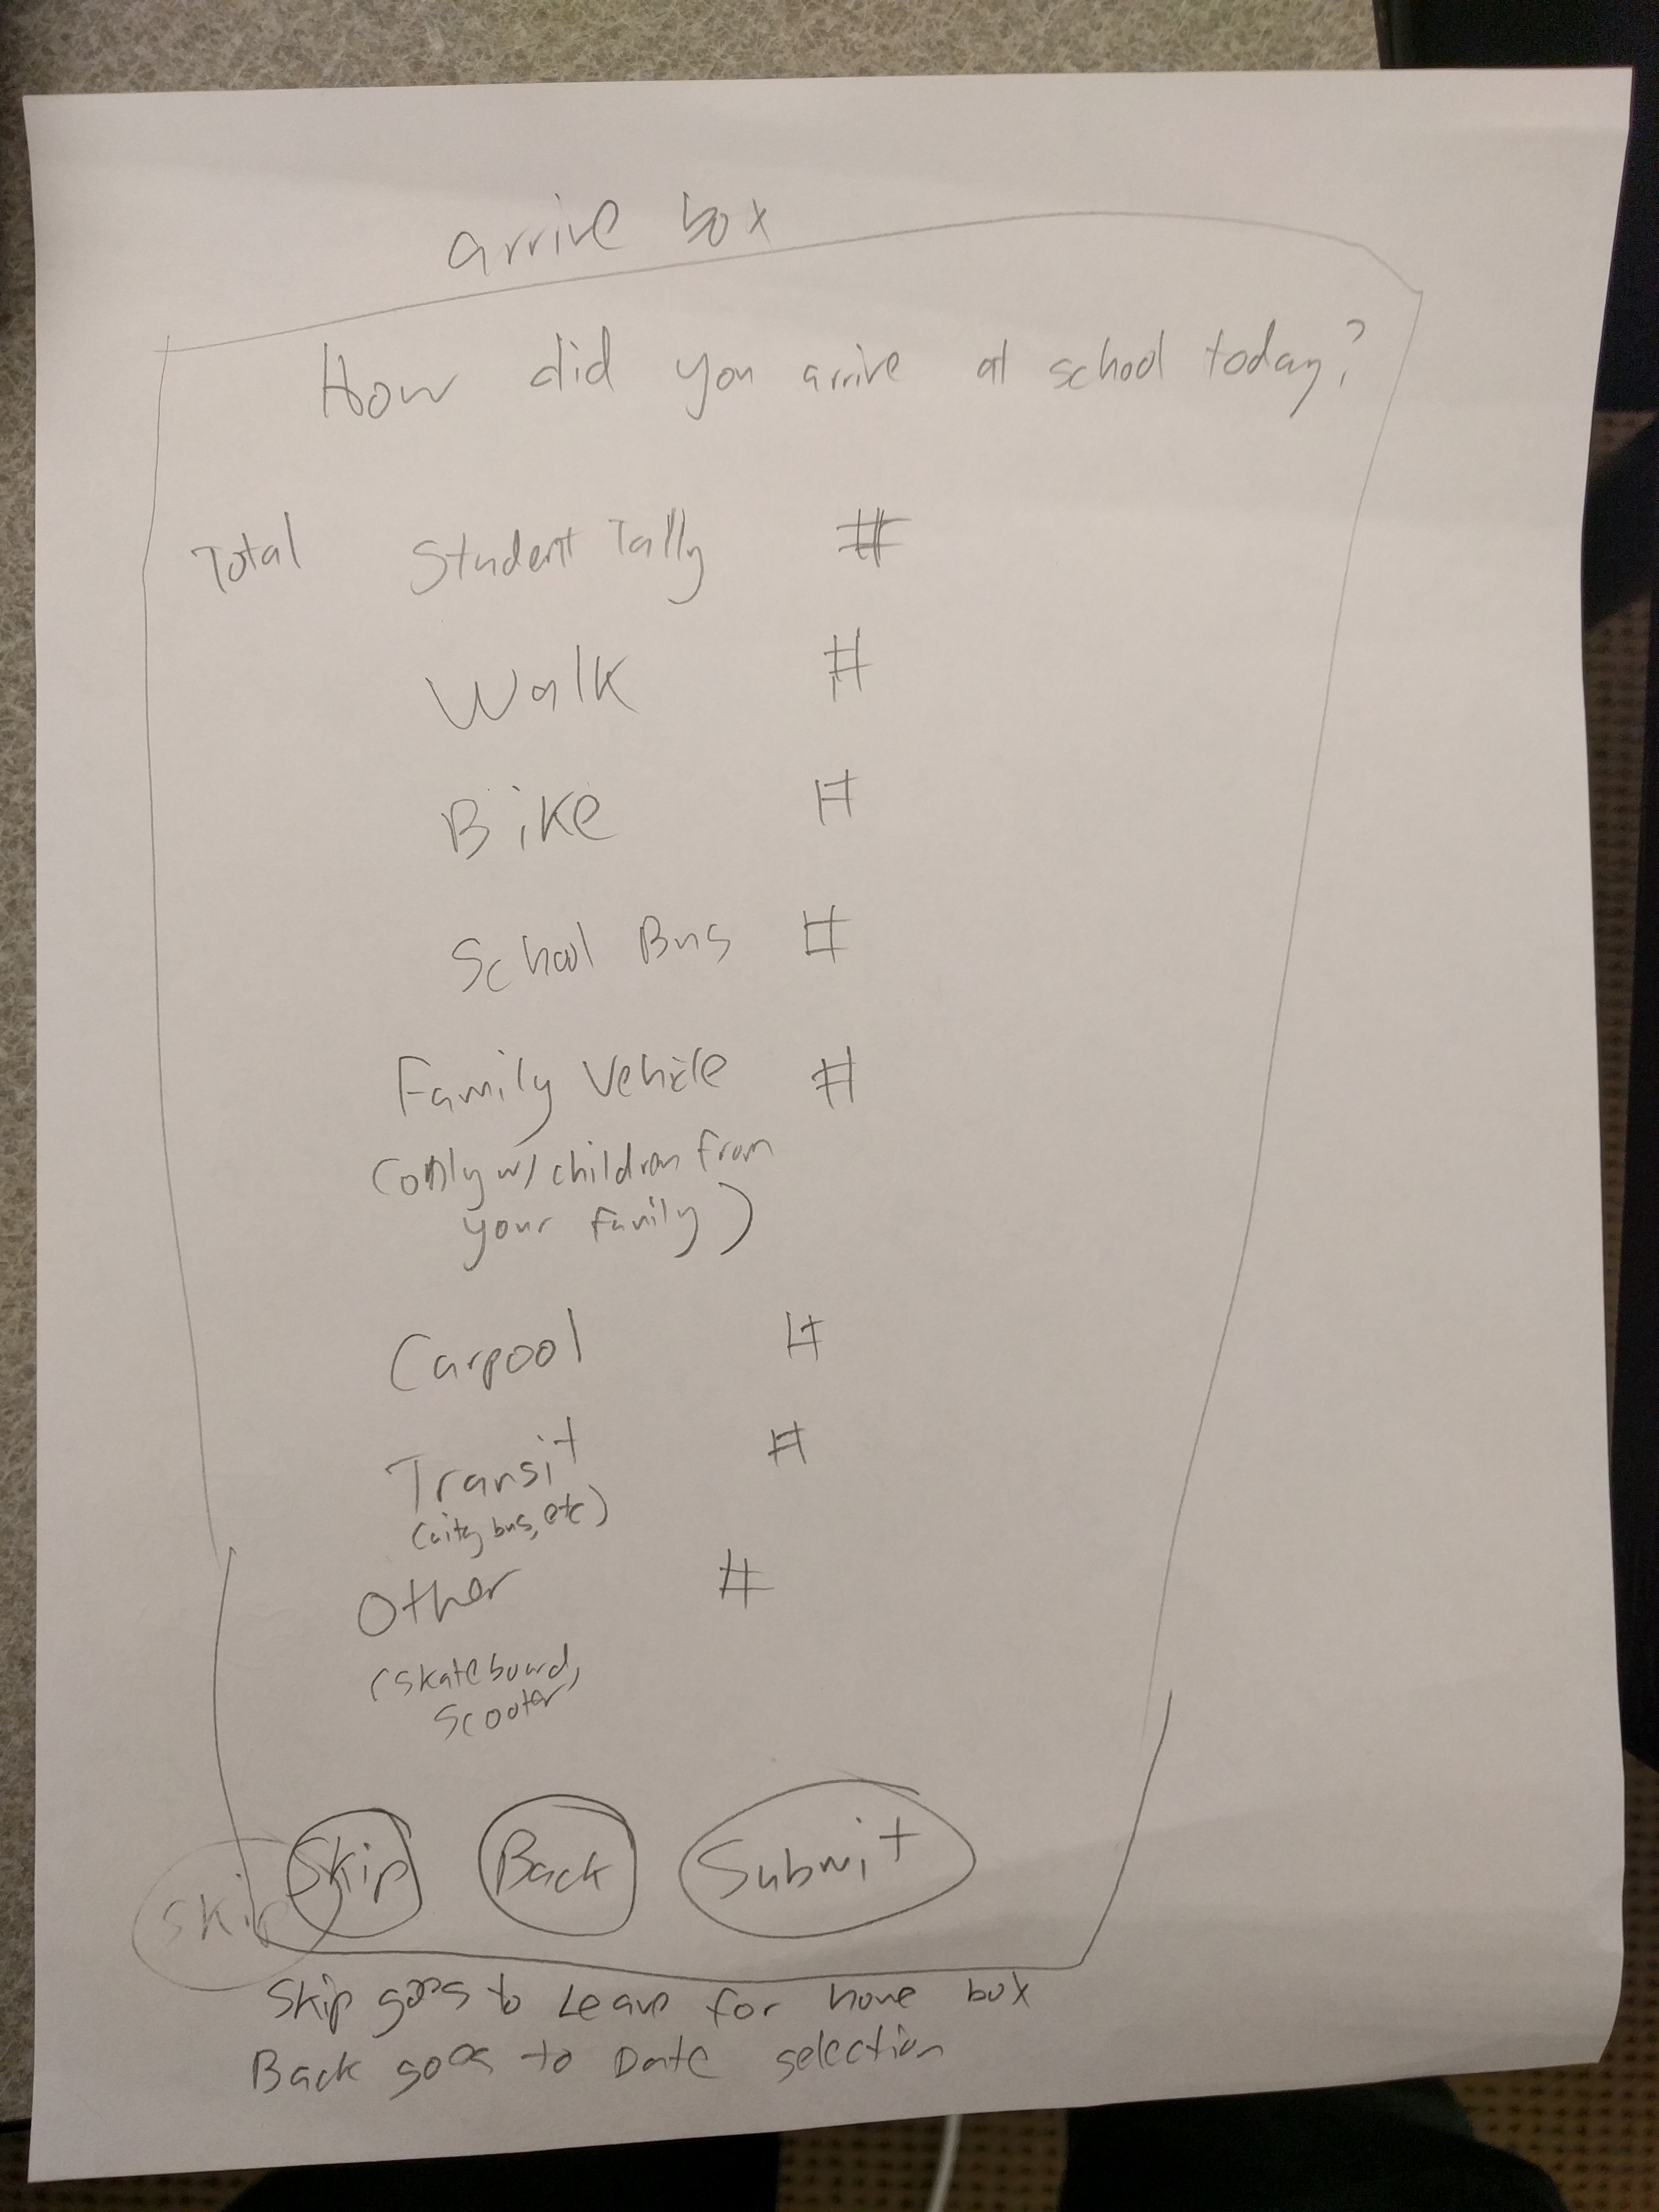 arrive box
How did you arrive at school today?
Total Student Tally #
Walk #
Bike #
School Bus #
Family Vehicle #
(only w/ children from
your family)
Carpool #
Transit #
(city bus, etc)
Other #
(skateboard,
scooter)
Skip Skip Back Submit
Skip goes to Leave for home box
Back goes to Date selection